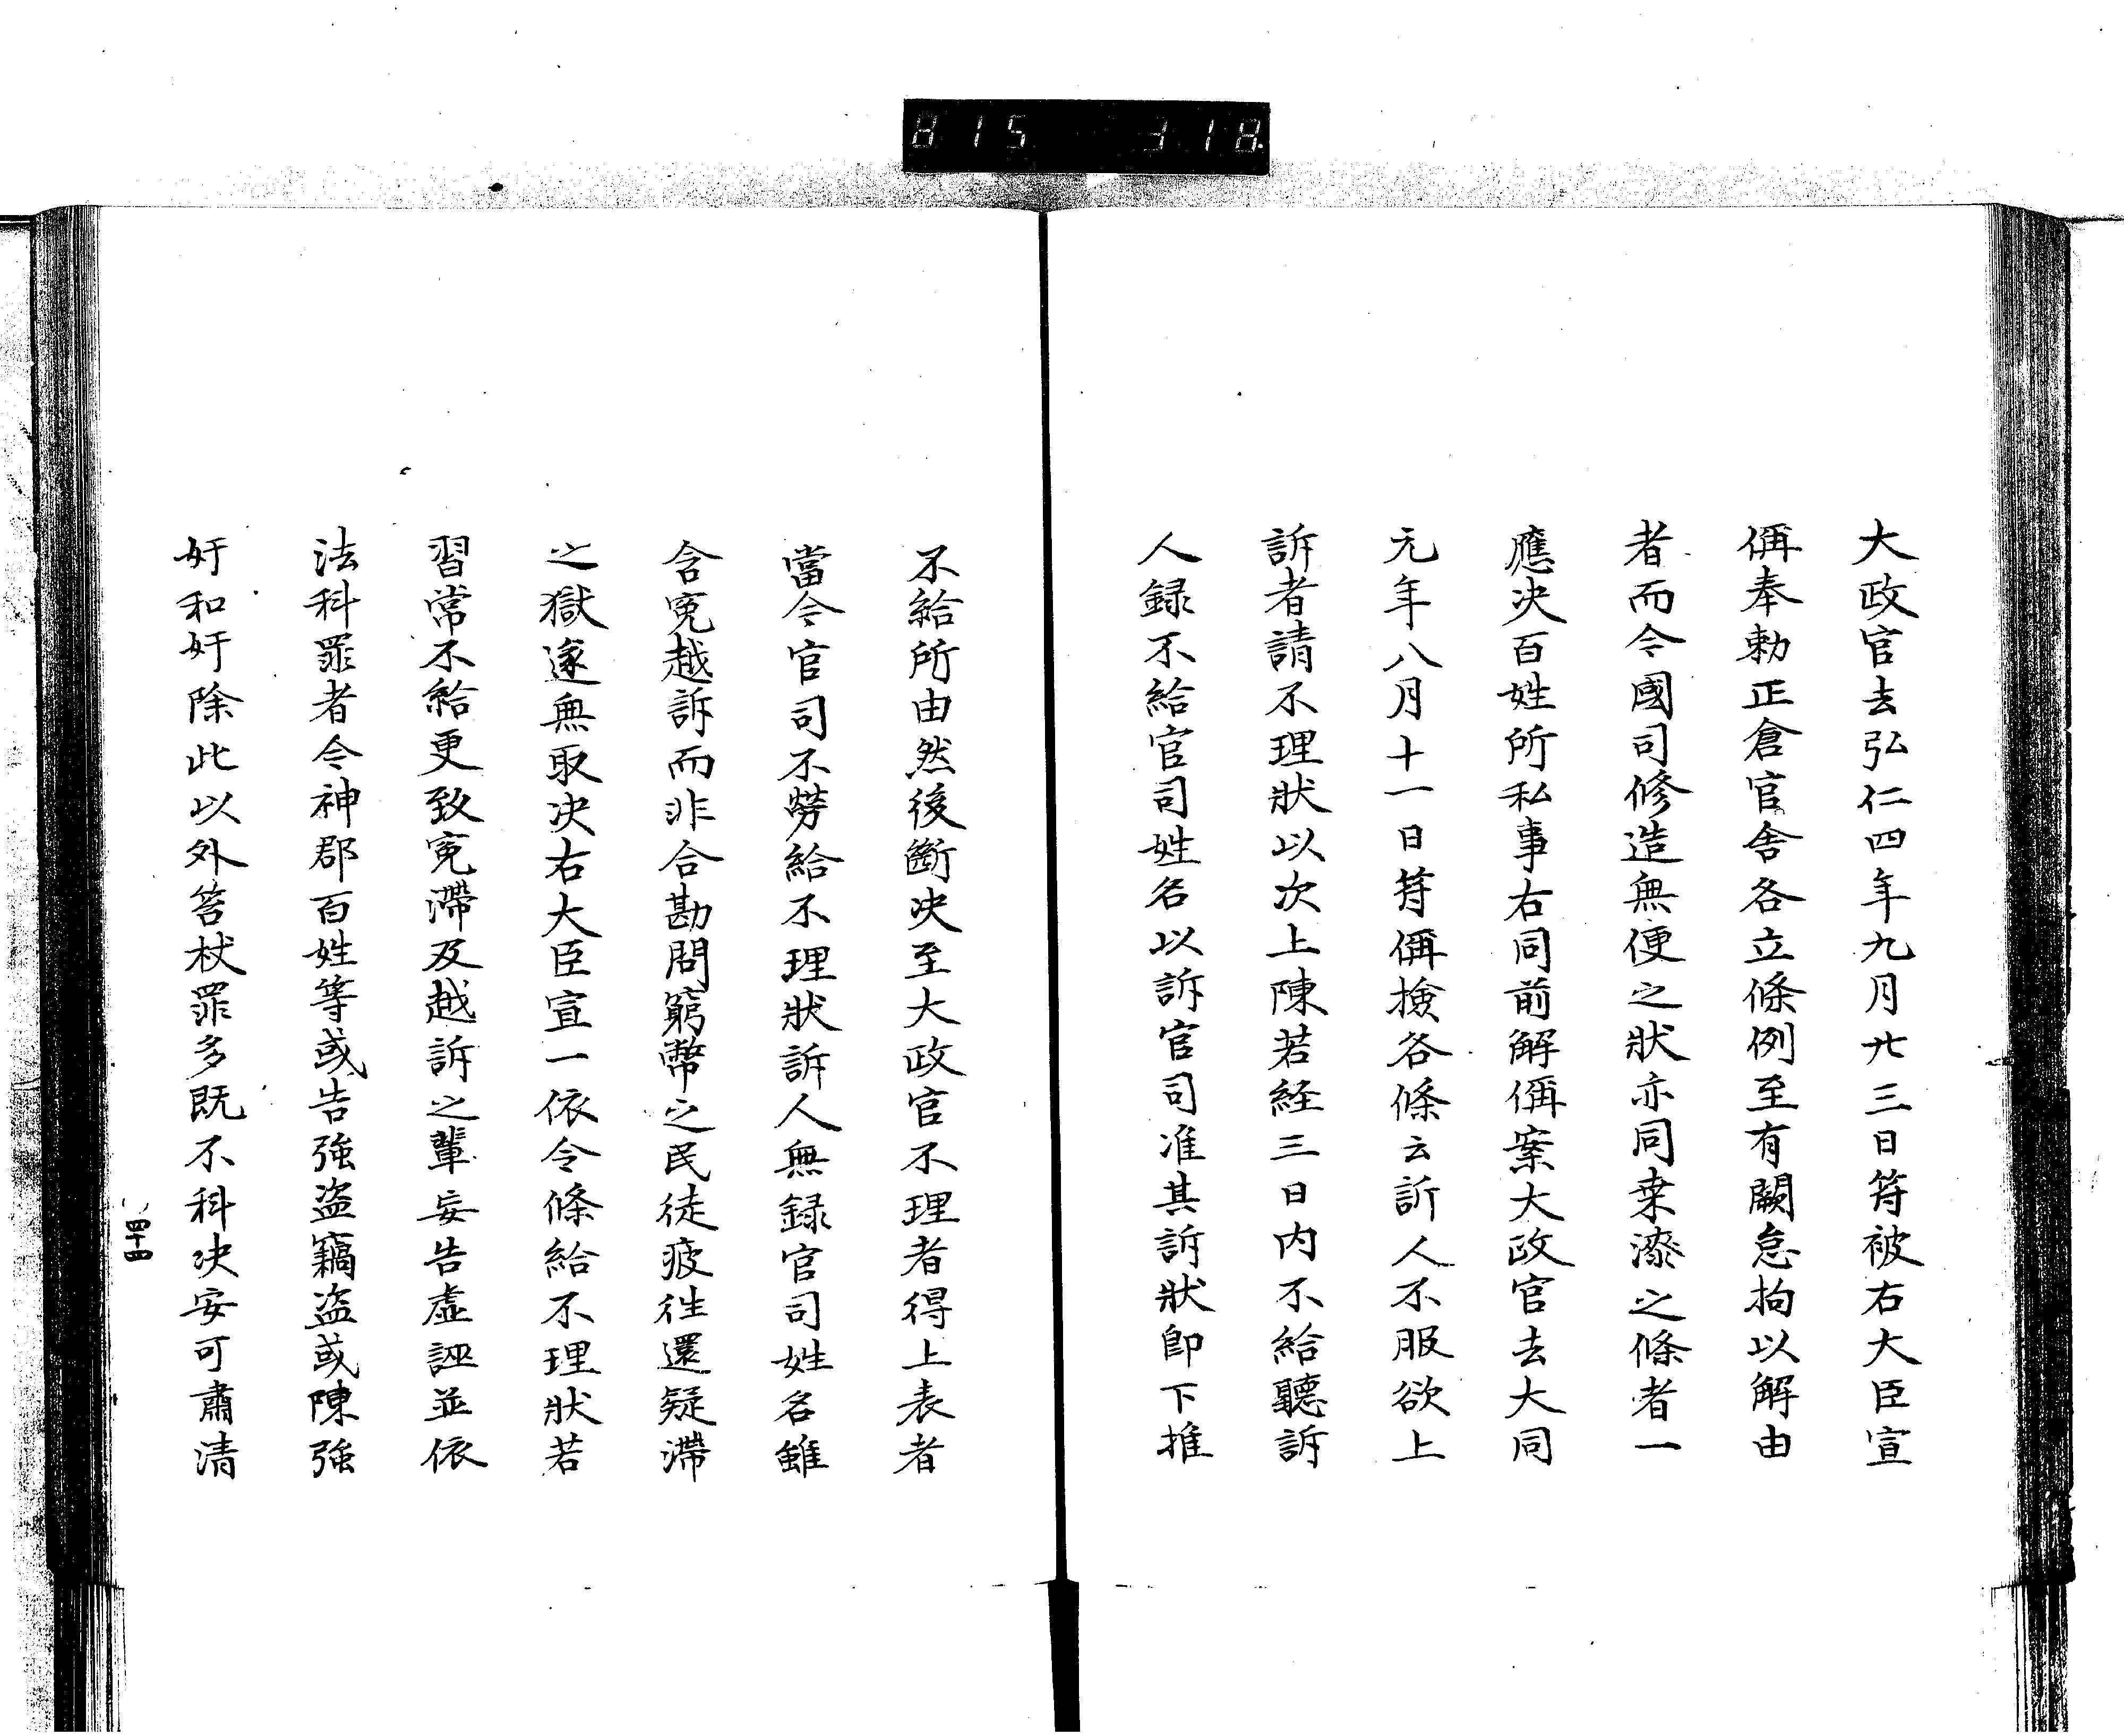 815 318
大政官去弘仁四年九月廿三日符被右大臣宣
偁奉勅正倉官舎各立條例至有闕怠拘以解由
者而令國司修造無便之狀亦同桒漆之條者一
應决百姓所私事右同前解偁案大政官去大同
元年八月十一日符偁撿各條云訴人不服欲上
訴者請不理狀以次上陳若経三日内不給聽訴
人録不給官司姓名以訴官司准其訴狀即下推
不給所由然後斷决至大政官不理者得上表者
當今官司不勞給不理狀訴人無録官司姓名雖
含寃越訴而非合勘問窮幣之民徒疲往還疑滯
之獄遂無取决右大臣宣一依令條給不理狀若
習常不給更致寃滯及越訴之輩妄告虚誣並依
法科罪者令神郡百姓等或告強盗竊盗或陳強
奸和奸除此以外笞杖罪多既不科决安可肅清
四十四